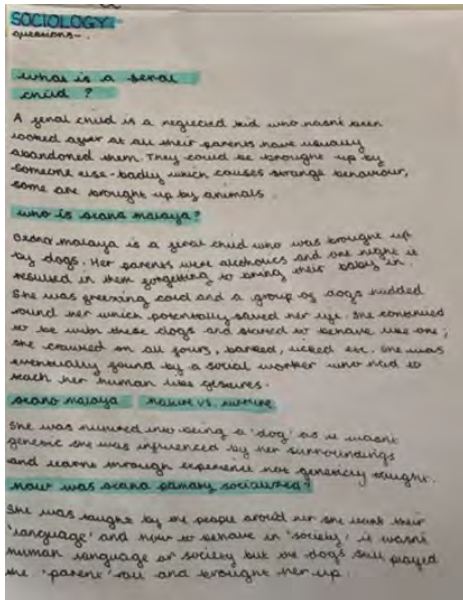 SOCIOLOGY
questions-.
what is a feral
child ?
A feral child is a neglected kid who hasnt been
looked after at all their parents have usually
abandoned them. They could be brought up by
someone else - badly which causes strange behaviour,
some are brought up by animals.
who is oxana malaya?
Oxana malaya is a feral child who was brought up
by dogs. Her parents were alcoholics and one night it
resulted in them forgetting to bring their baby in.
She was freezing cold and a group of dogs huddled
round her which potentially saved her life. She continued
to be with these dogs and started to behave like one;
she crawled on all fours, barked, licked etc. She was
eventually found by a social worker who had to
teach her human like gestures.
oxana malaya nature vs. nurture
She was nurtured into being a 'dog' as it wasnt
genetic she was influenced by her surroundings
and learnt through experience not geneticly taught.
How was oxana primary socialised?
She was taught by the people around her she learnt their
'language' and how to behave in 'society' it wasnt
human language or society but the dogs still played
the 'parent' role and brought her up.